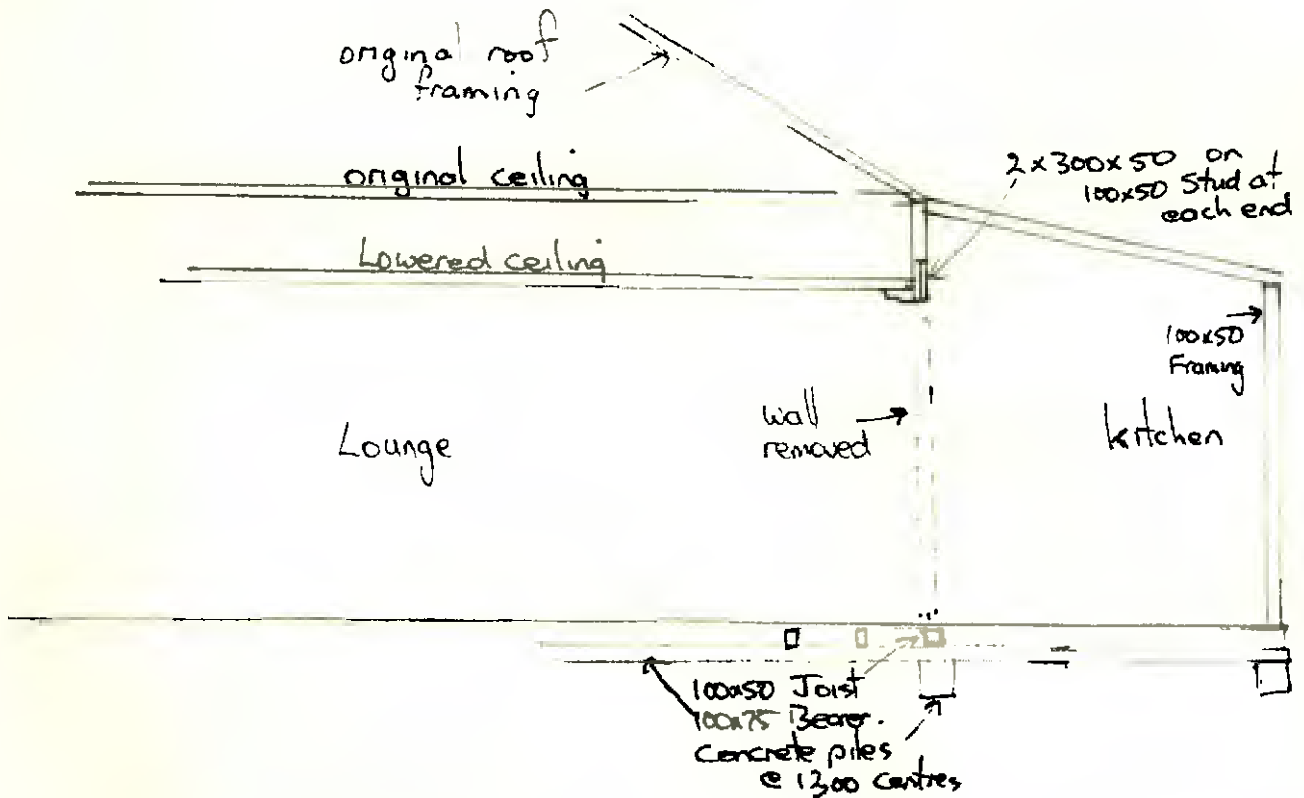 original roof
framing
original ceiling
2x300x50 on
100x50 Stud at
each end
Lowered ceiling
100x50
Framing
wall
removed
Lounge
kitchen
100x50 Joist
100x75 Bearer.
Concrete piles
@ 1300 centres